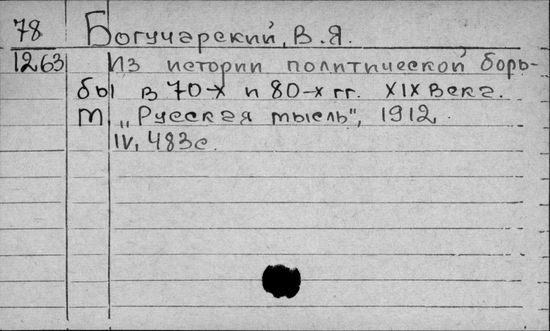 78 Богучарский, В.Я.
1263 Из истории политической борь-
бы в 70-х и 80-х гг. XIX века.
М, „Русская мысль", 1912.
IV, 483с.